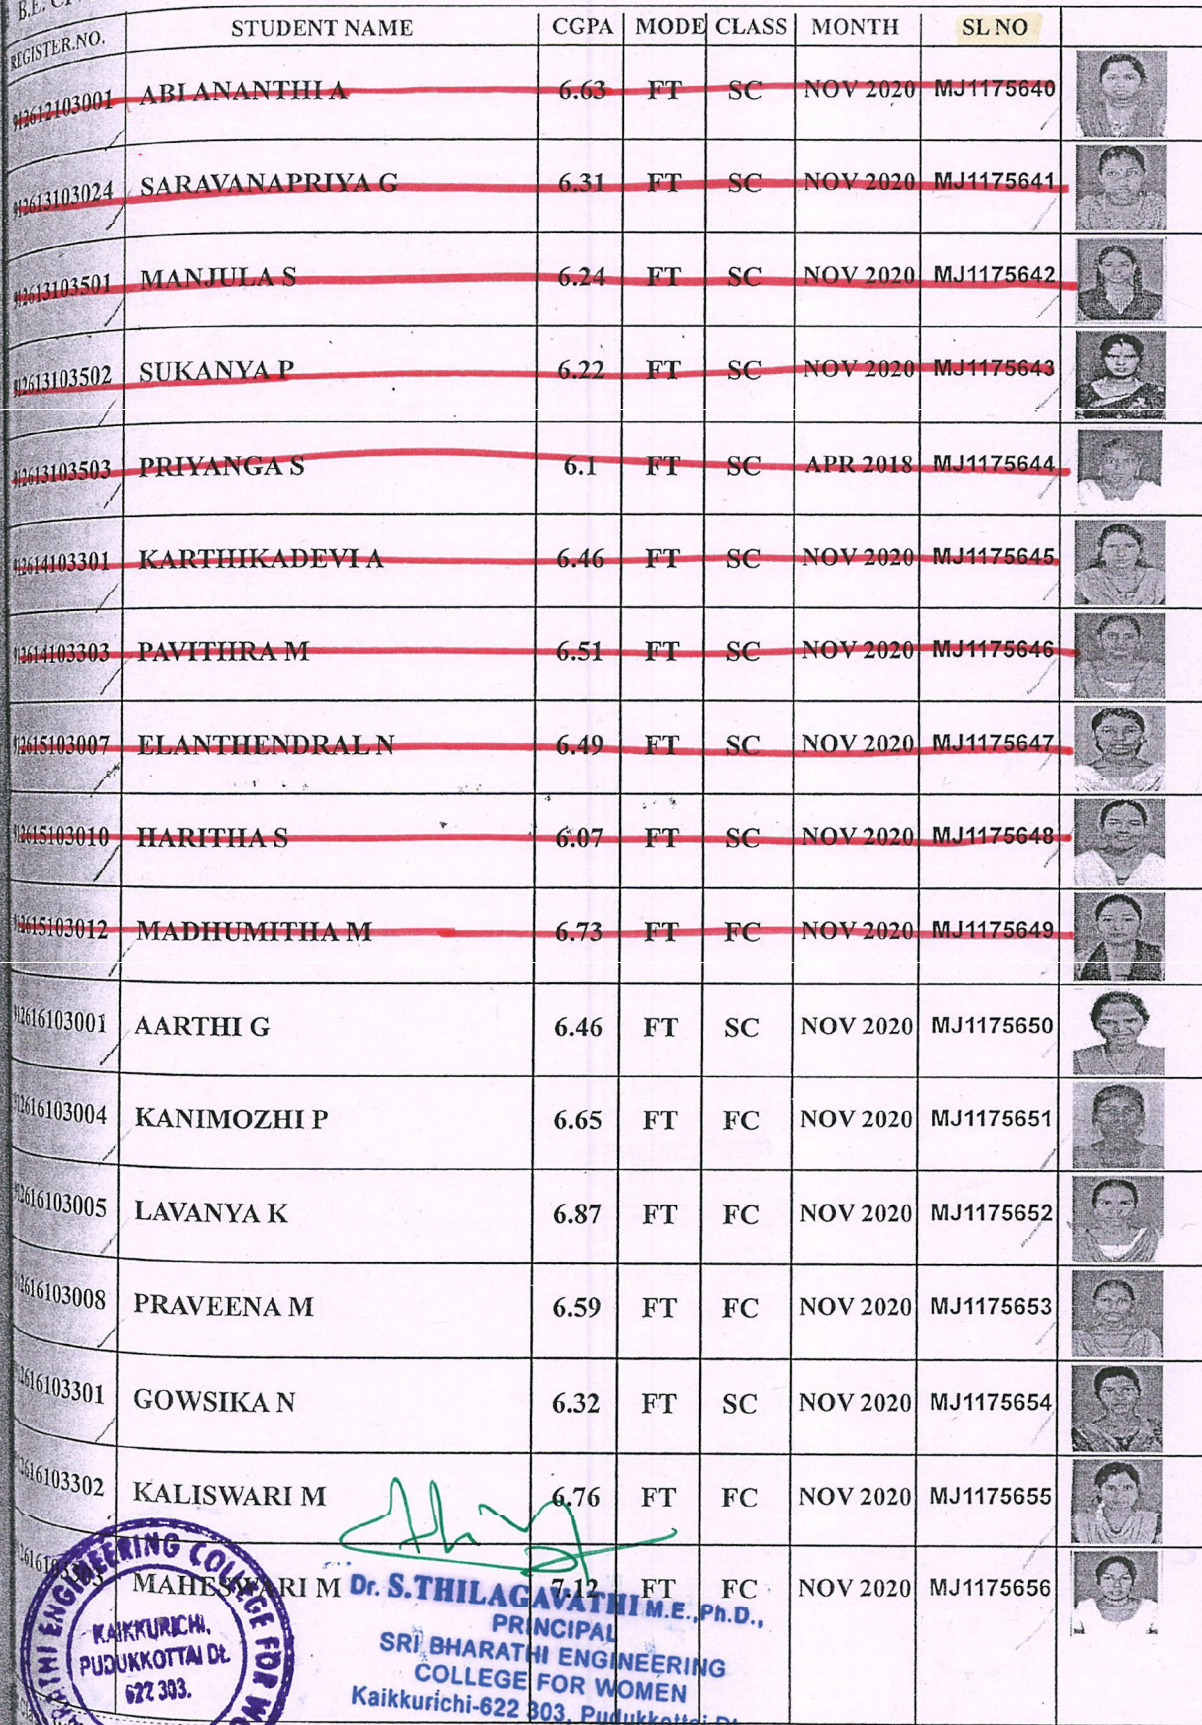 B.E.
REGISTER.NO. STUDENT NAME CGPA MODE CLASS MONTH SL NO
912612103001 ABI ANANTHI A 6.63 FT SC NOV 2020 MJ1175640
912613103024 SARAVANAPRIYA G 6.31 FT SC NOV 2020 MJ1175641
912613103501 MANJULA S 6.24 FT SC NOV 2020 MJ1175642
912613103502 SUKANYA P 6.22 FT SC NOV 2020 MJ1175643
912613103503 PRIYANGA S 6.1 FT SC APR 2018 MJ1175644
912614103301 KARTHIKADEVI A 6.46 FT SC NOV 2020 MJ1175645
912614103303 PAVITHRA M 6.51 FT SC NOV 2020 MJ1175646
912615103007 ELANTHENDRAL N 6.49 FT SC NOV 2020 MJ1175647
912615103010 HARITHA S 6.07 FT SC NOV 2020 MJ1175648
912615103012 MADHUMITHA M 6.73 FT FC NOV 2020 MJ1175649
912616103001 AARTHI G 6.46 FT SC NOV 2020 MJ1175650
912616103004 KANIMOZHI P 6.65 FT FC NOV 2020 MJ1175651
912616103005 LAVANYA K 6.87 FT FC NOV 2020 MJ1175652
2616103008 PRAVEENA M 6.59 FT FC NOV 2020 MJ1175653
2616103301 GOWSIKA N 6.32 FT SC NOV 2020 MJ1175654
2616103302 KALISWARI M 6.76 FT FC NOV 2020 MJ1175655
MAHESWARI M 7.12 FT FC NOV 2020 MJ1175656
Dr. S.THILAGAVATHI M.E.,Ph.D.,
PRINCIPAL
SRI BHARATHI ENGINEERING
COLLEGE FOR WOMEN
Kaikkurichi-622 303, Pudukkottai Dt.
ENGINEERING COLLEGE FOR
KAIKKURICHI,
PUDUKKOTTAI Dt.
622 303.